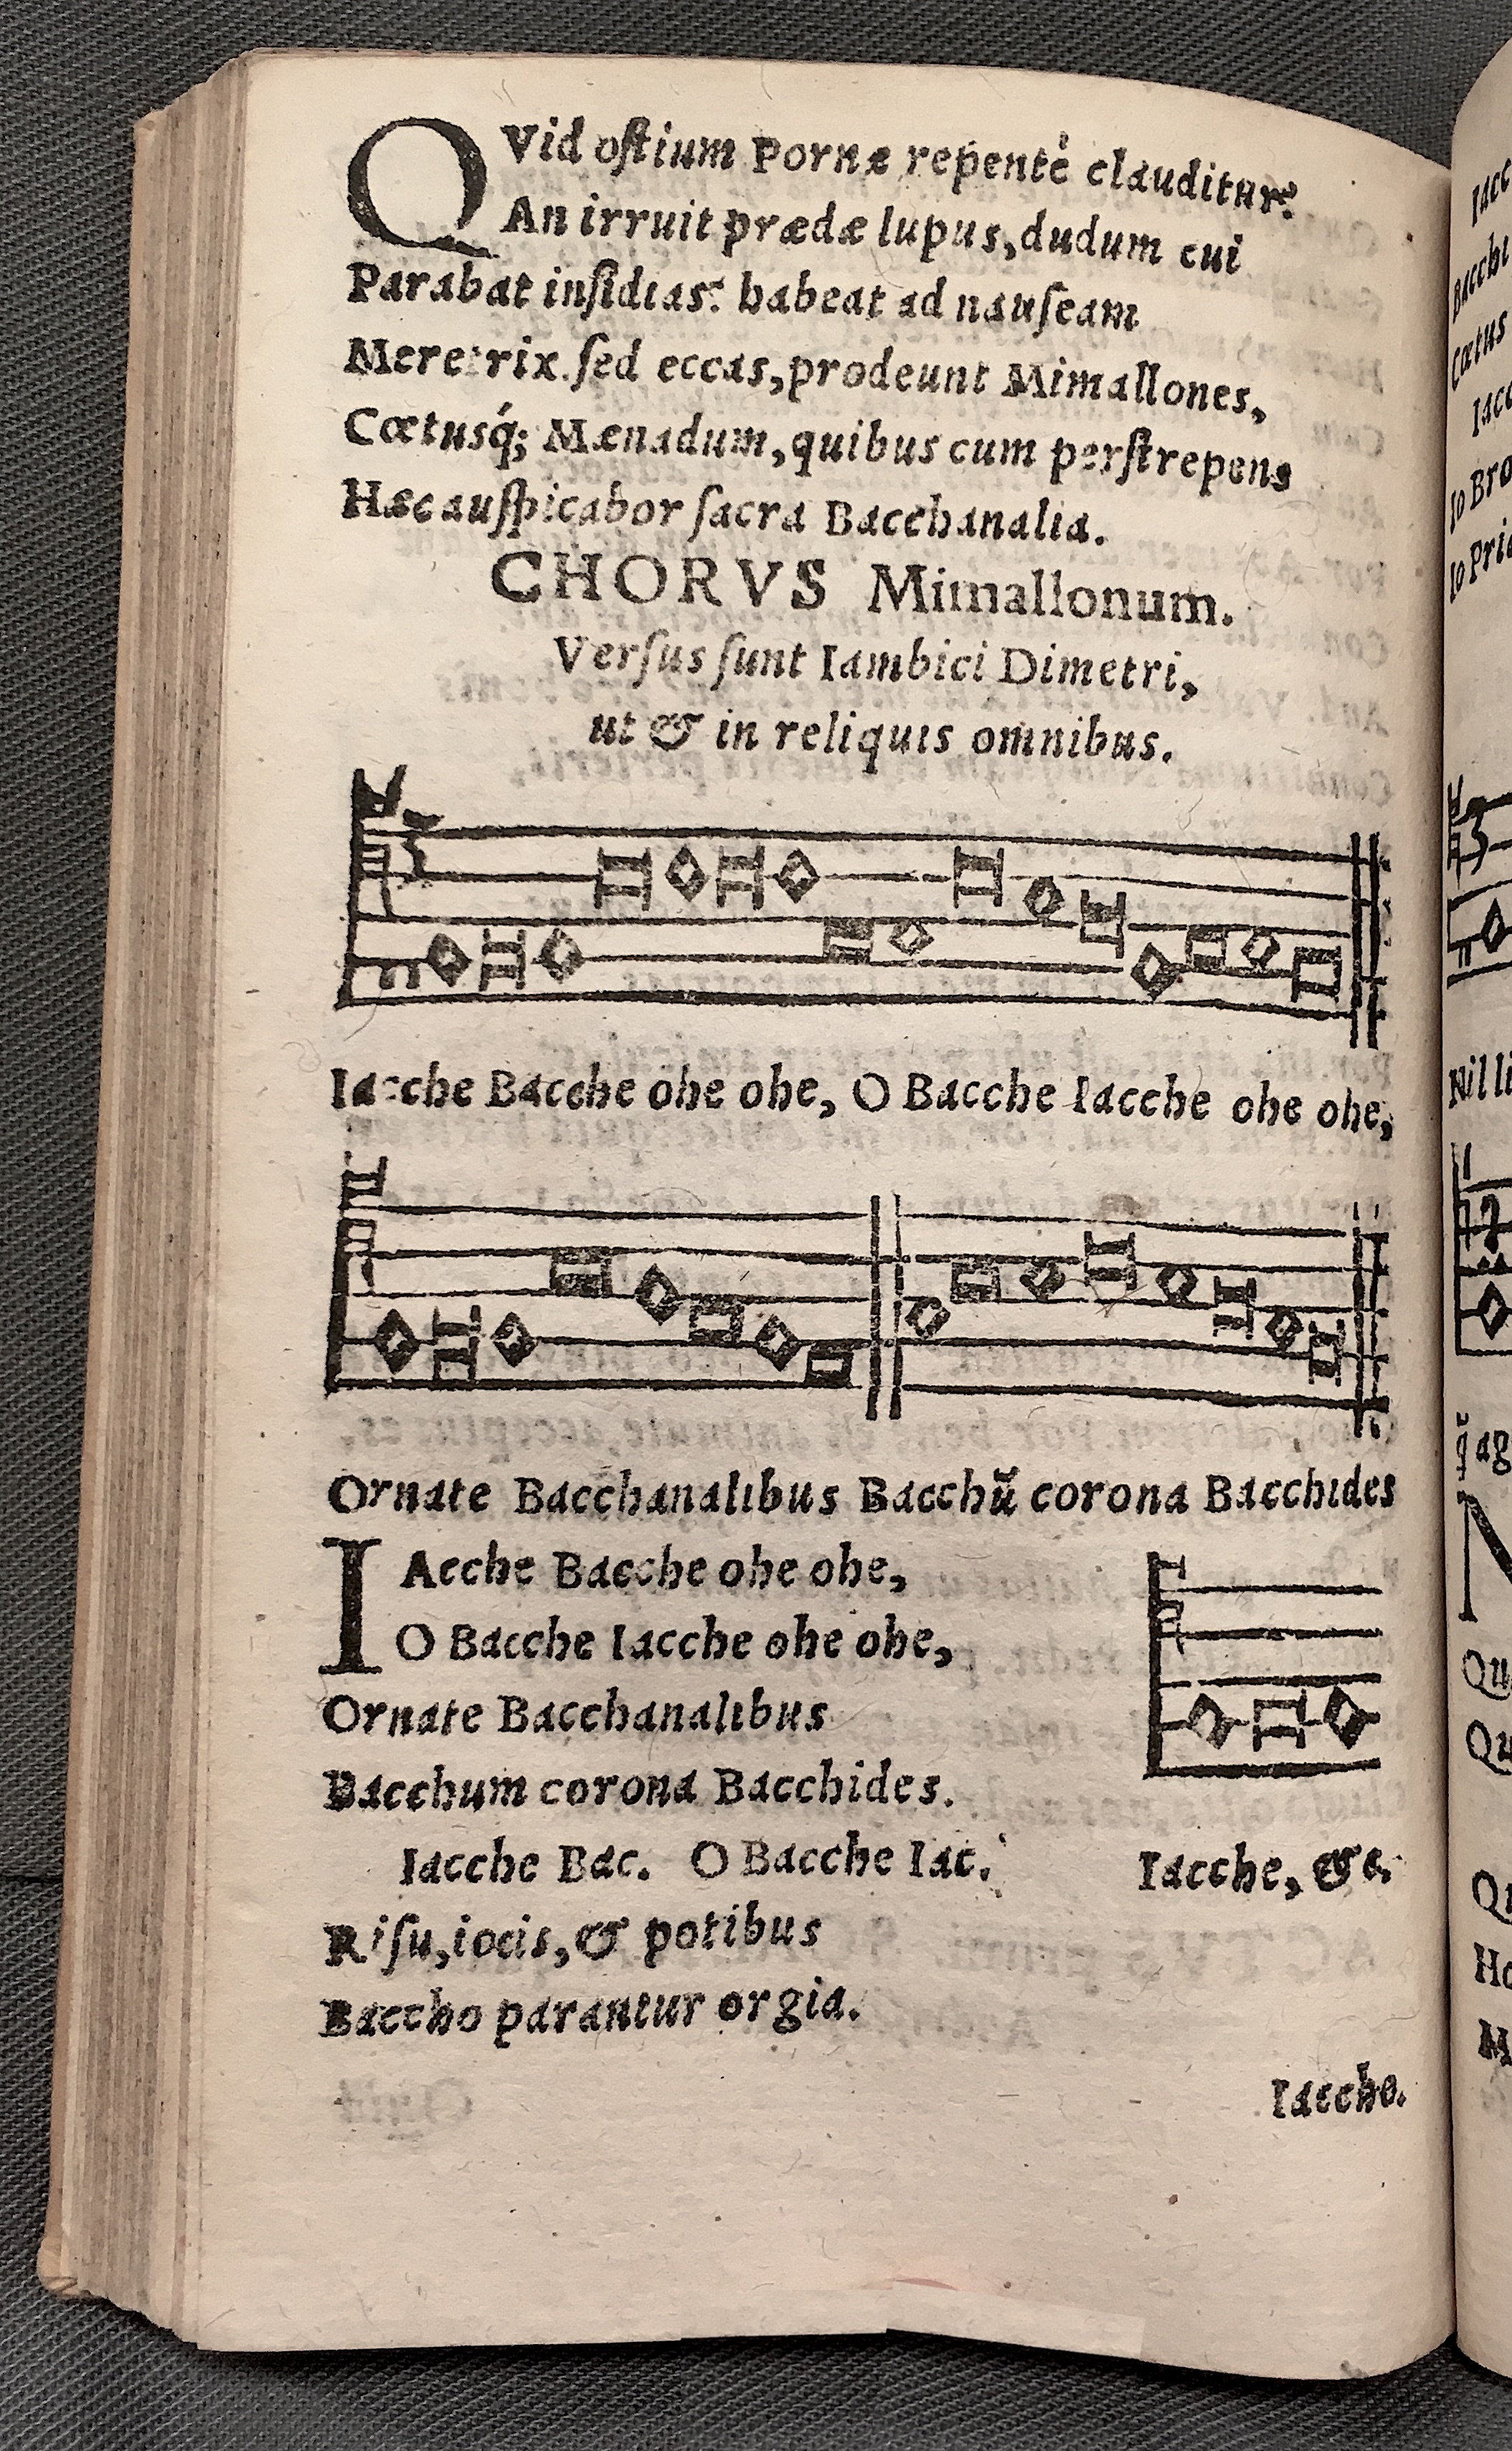 QVid oſtium Pornæ repentè clauditur?
An irruit prædæ lupus, dudum cui
Parabat inſidias? habeat ad nauſeam
Meretrix. ſed eccas, prodeunt Mimallones,
Cœtusq́; Mænadum, quibus cum perſtrepens
Hæc auſpicabor ſacra Bacchanalia.
CHORVS Mimallonum.
Verſus ſunt Iambici Dimetri,
ut & in reliquis omnibus.
Iacche Bacche ohe ohe, O Bacche Iacche ohe ohe,
Ornate Bacchanalibus Bacchũ corona Bacchides
IAcche Bacche ohe ohe,
O Bacche Iacche ohe ohe,
Ornate Bacchanalibus
Bacchum corona Bacchides.
Iacche Bac. O Bacche Iac.
Iacche, &c.
Riſu, iocis, & potibus
Baccho parantur orgia.
Iaccho.